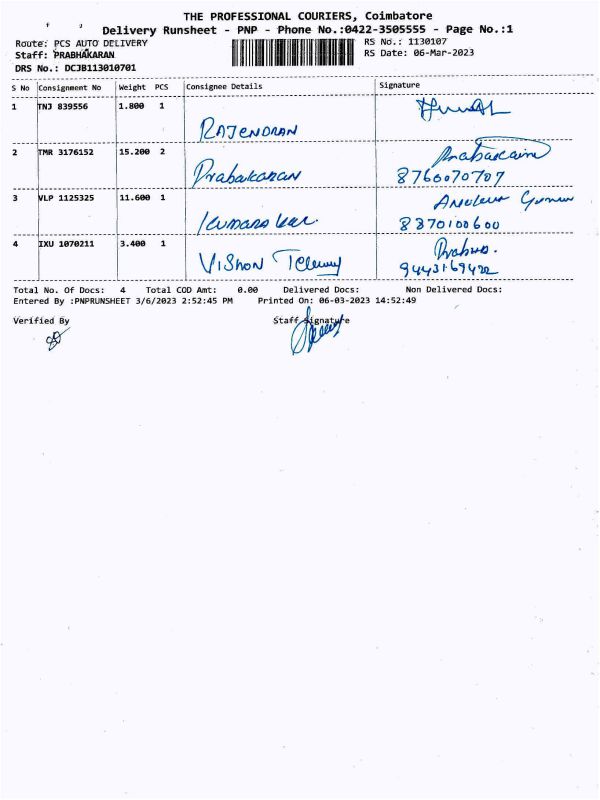 THE PROFESSIONAL COURIERS, Coimbatore
Delivery Runsheet - PNP - Phone No.:0422-3505555 - Page No.:1
Route: PCS AUTO DELIVERY
RS No.: 1130107
Staff: PRABHAKARAN
RS Date: 06-Mar-2023
DRS No.: DCJB113010701
S No Consignment No Weight PCS Consignee Details Signature
1 TNJ 839556 1.800 1
RAJENDRAN
2 TMR 3176152 15.200 2
Prabakaran
8760070707
3 VLP 1125325 11.600 1
8870100600
4 IXU 1070211 3.400 1
Vishon
9443169422
Total No. Of Docs: 4 Total COD Amt: 0.00 Delivered Docs: Non Delivered Docs:
Entered By :PNPRUNSHEET 3/6/2023 2:52:45 PM Printed On: 06-03-2023 14:52:49
Verified By Staff Signature